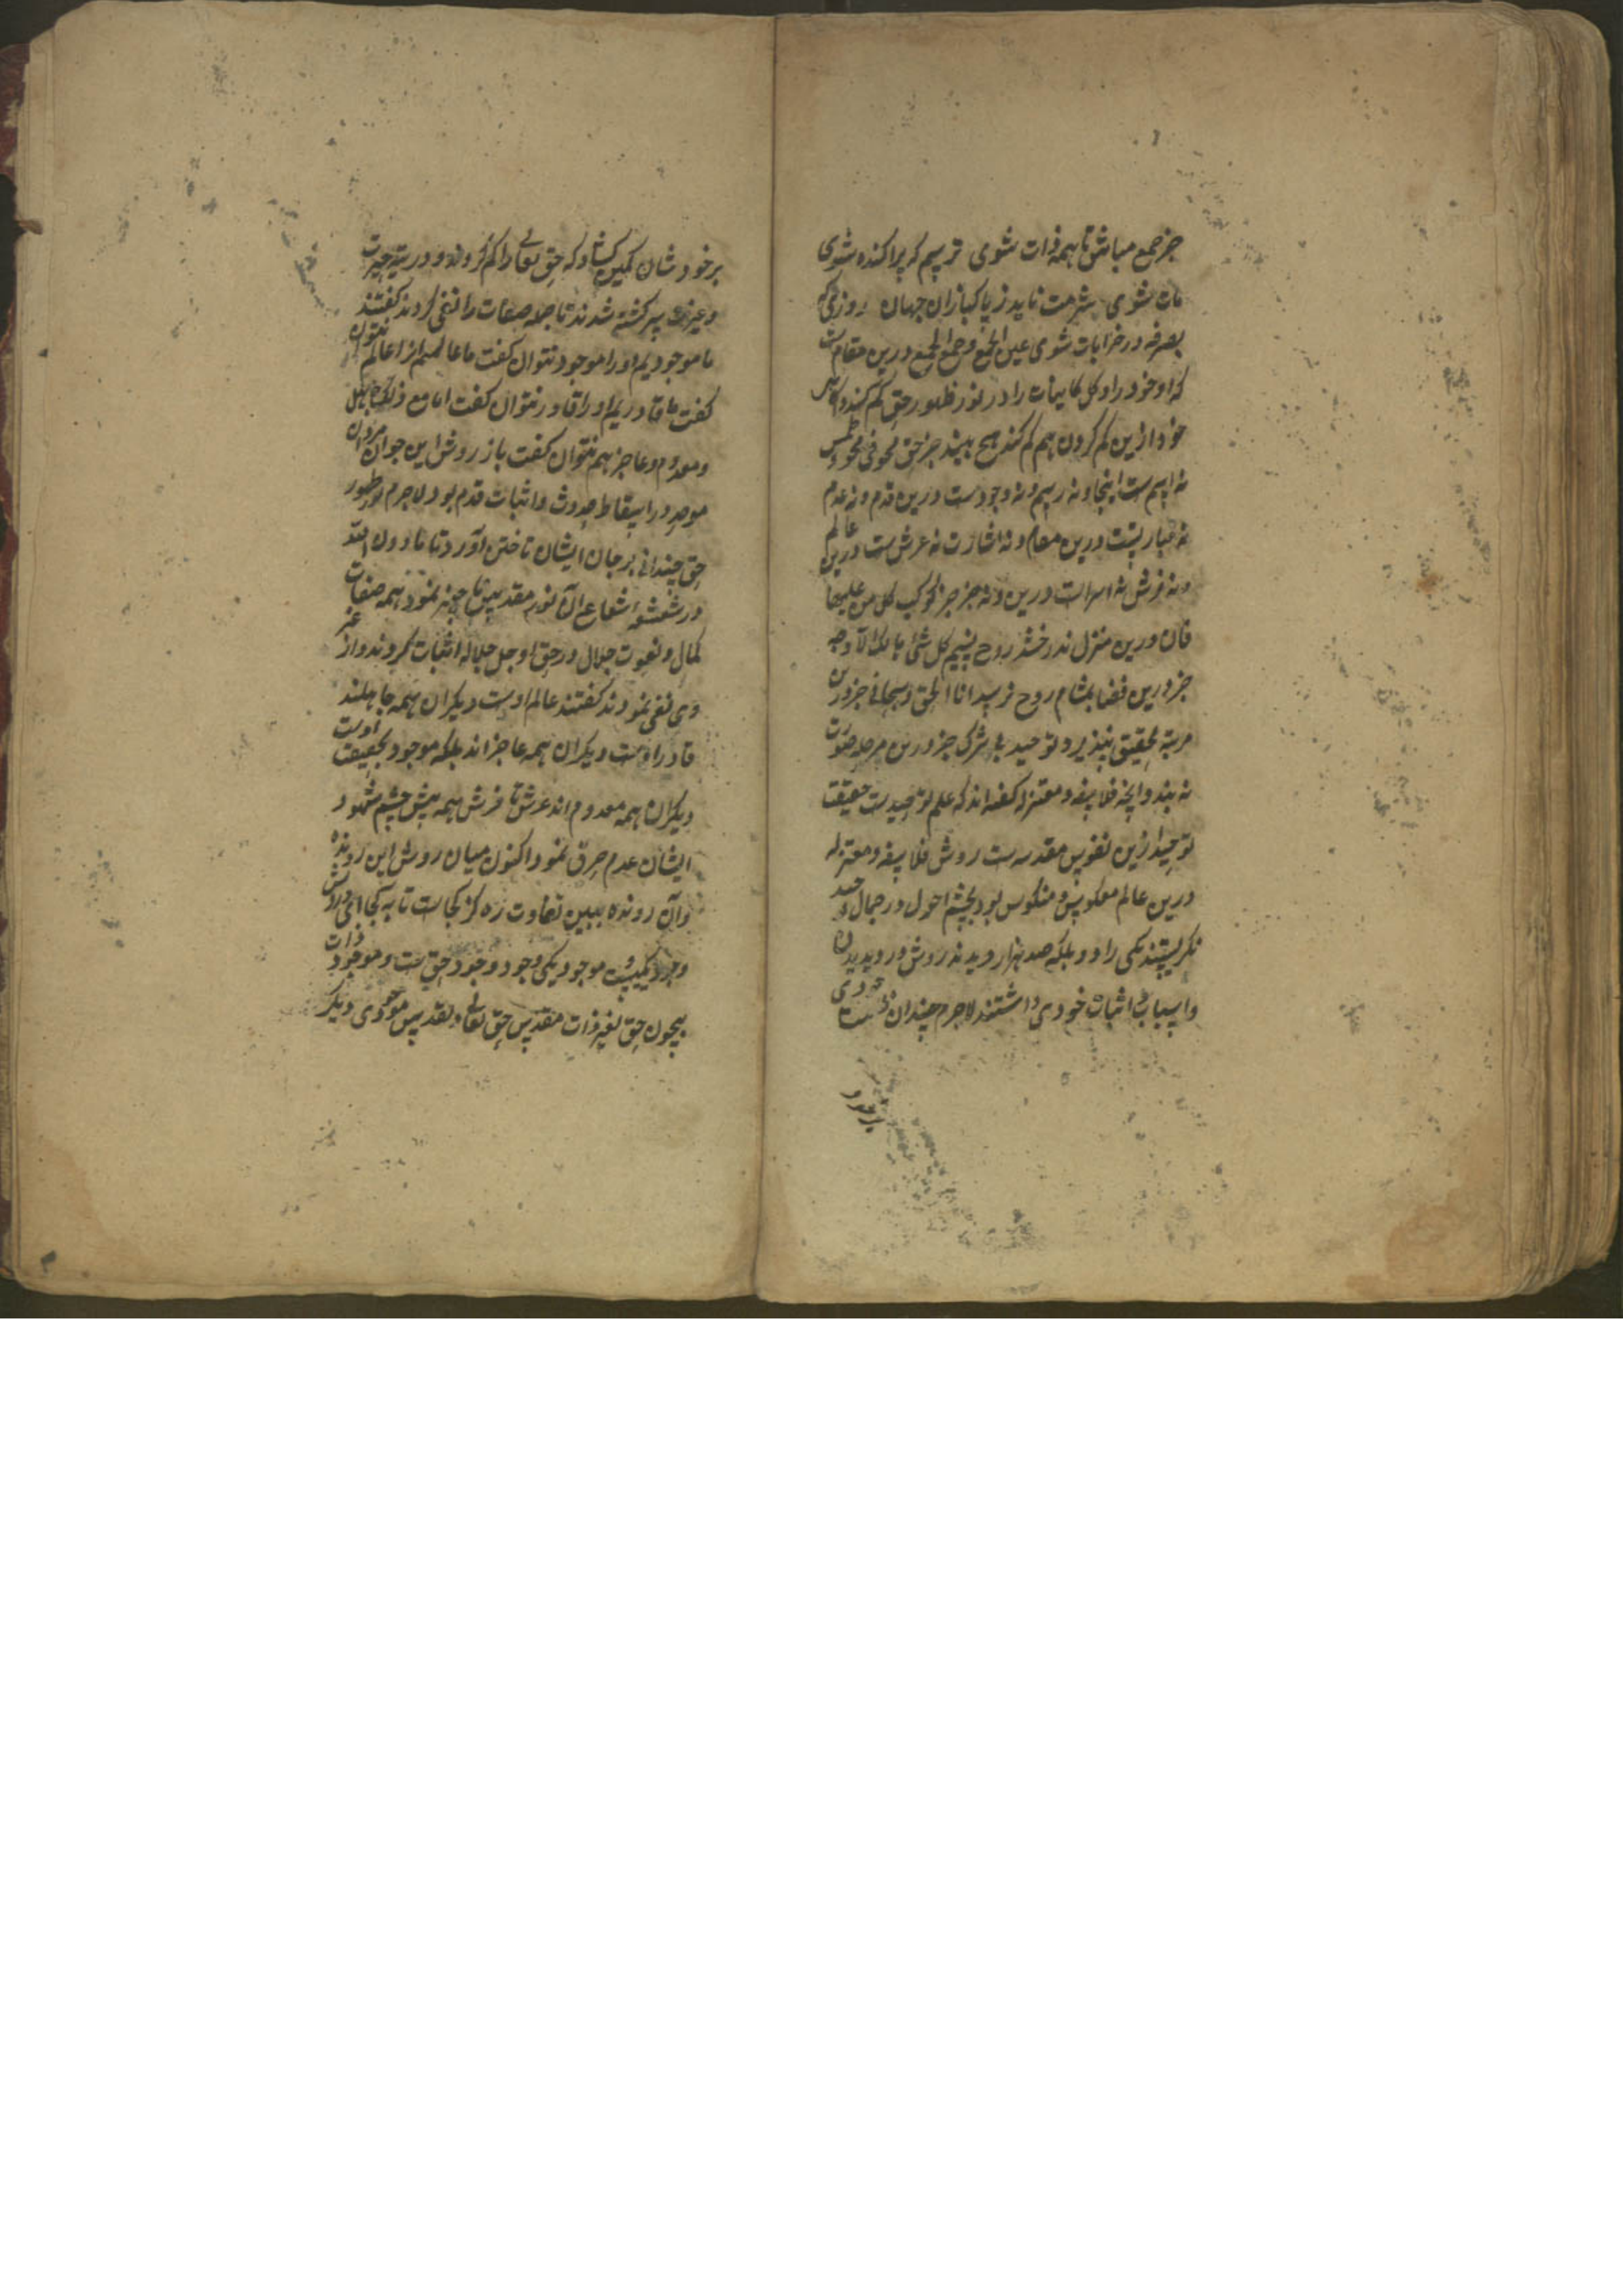 جز جمع مباش تا همه ذات شوی ترسم که پراکنده شوی
مات شوی شرمت ناید ز پاکبازان جهان روزی که
بصرفه در خرابات شوی عین الجمع و جمع الجمع درین مقامست
که او خود را و کل کاینات را در نور ظهور حق گم کند و پس
خود ازین گم کردن هم گم کند هیچ نبیند جز حق محو فی محو و طمس
نه اسم ست اینجا و نه رسم و نه وجودست درین قدم و نه عدم
نه عبارتست درین مقام و نه اشارت نه عرش ست درین عالم
و نه فرش نه اسراست درین و نه خبر جز کوکب کل من علیها
فان درین منزل ندرخشد روح نسیم کل شئ هالک الا وجه
جز درین فضا بمشام روح نرسد انا الحق و سبحانی جز درین
مرتبه تحقیق نپذیرد توحید بی شرک جز درین مرحله صورت
نه بندد و انچه فلاسفه و معتزله گفته اند که علم توحیدست حقیقت
توحید ازین نفوس مقدسه ست روش فلاسفه و معتزله
درین عالم معکوس و منکوس بود بچشم احول در جمال توحید
نگریستند یکی را دو بلکه صد هزار دیدند روش در دیدن
و اسباب اثبات خودی داشتند لاجرم چندان
بر خودشان کمین کشاد که حق تعالی را گم کردند و در تیه حیرت
و غیرت سرگشته شدند تا جمله صفات را نفی کردند گفتند
ما موجودیم او را موجود نتوان گفت ما عالمیم او را عالم نتوان
گفت ما قادریم او را قادر نتوان گفت اما مع ذلک جاهل
و معدوم و عاجز هم نتوان گفت باز روش این جوان مردان
موحد در اسقاط حدوث و اثبات قدم بود لاجرم نور ظهور
حق چندانی بر جان ایشان تاختن آورد تا نابود
در شعشعه شعاع آن نور مقدس ناچیز نمود همه صفات
کمال و نعوت جلال در حق او جل جلاله اثبات کردند و از غیر
وی نفی نمودند گفتند عالم اوست دیگران همه جاهلند
قادر اوست دیگران همه عاجز اند بلکه موجود بحقیقت اوست
دیگران همه معدوم اند عرش تا فرش همه پیش چشم شهود
ایشان عدم صرف نمود اکنون میان روش این رونده
و آن رونده ببین تفاوت ره کز کجاست تا به کجا ای درویش
وجود یکیست و موجود یکی وجود وجود حق ست و موجود ذات
بیچون حق بغیر ذات مقدس حق تعالی و تقدس موجودی دیگر